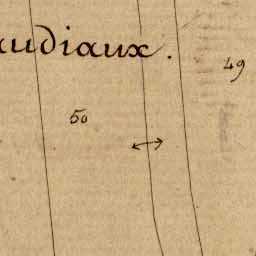 audiaux.
49
50